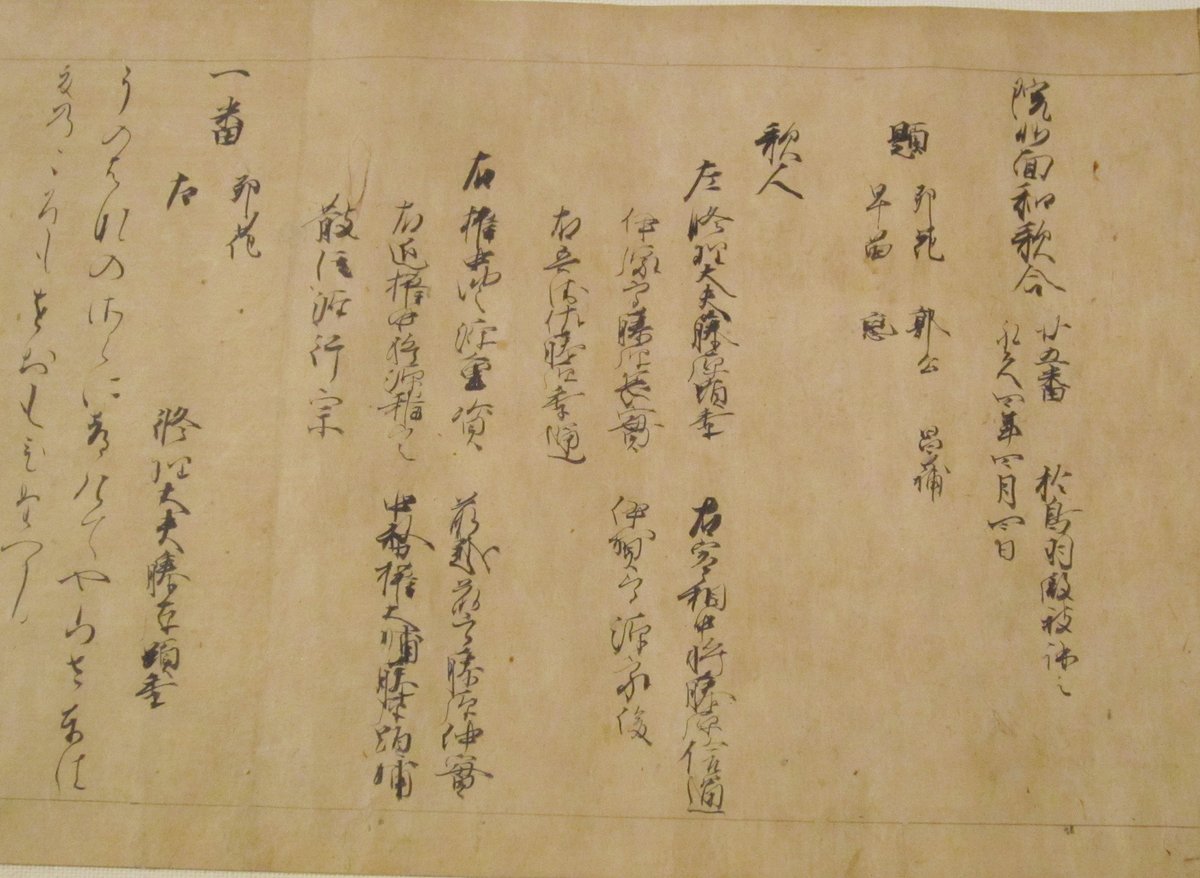 院北面和歌合 廿五番 於鳥羽殿被講之
永久四年四月四日
題 卯花 郭公 昌蒲
早苗 恋
歌人
左 修理大夫藤原顕季 右宰相中将藤原信通
伊豫守藤原長實 伊賀守源家俊
右兵衛佐藤原季通
右 権中納言源重資 前越前守藤原仲實
右近権中将源雅定 中務権大輔藤原顕輔
散位源行宗
一番 卯花
左 修理大夫藤原顕季
うのはなのさくにまかせてやまさとは